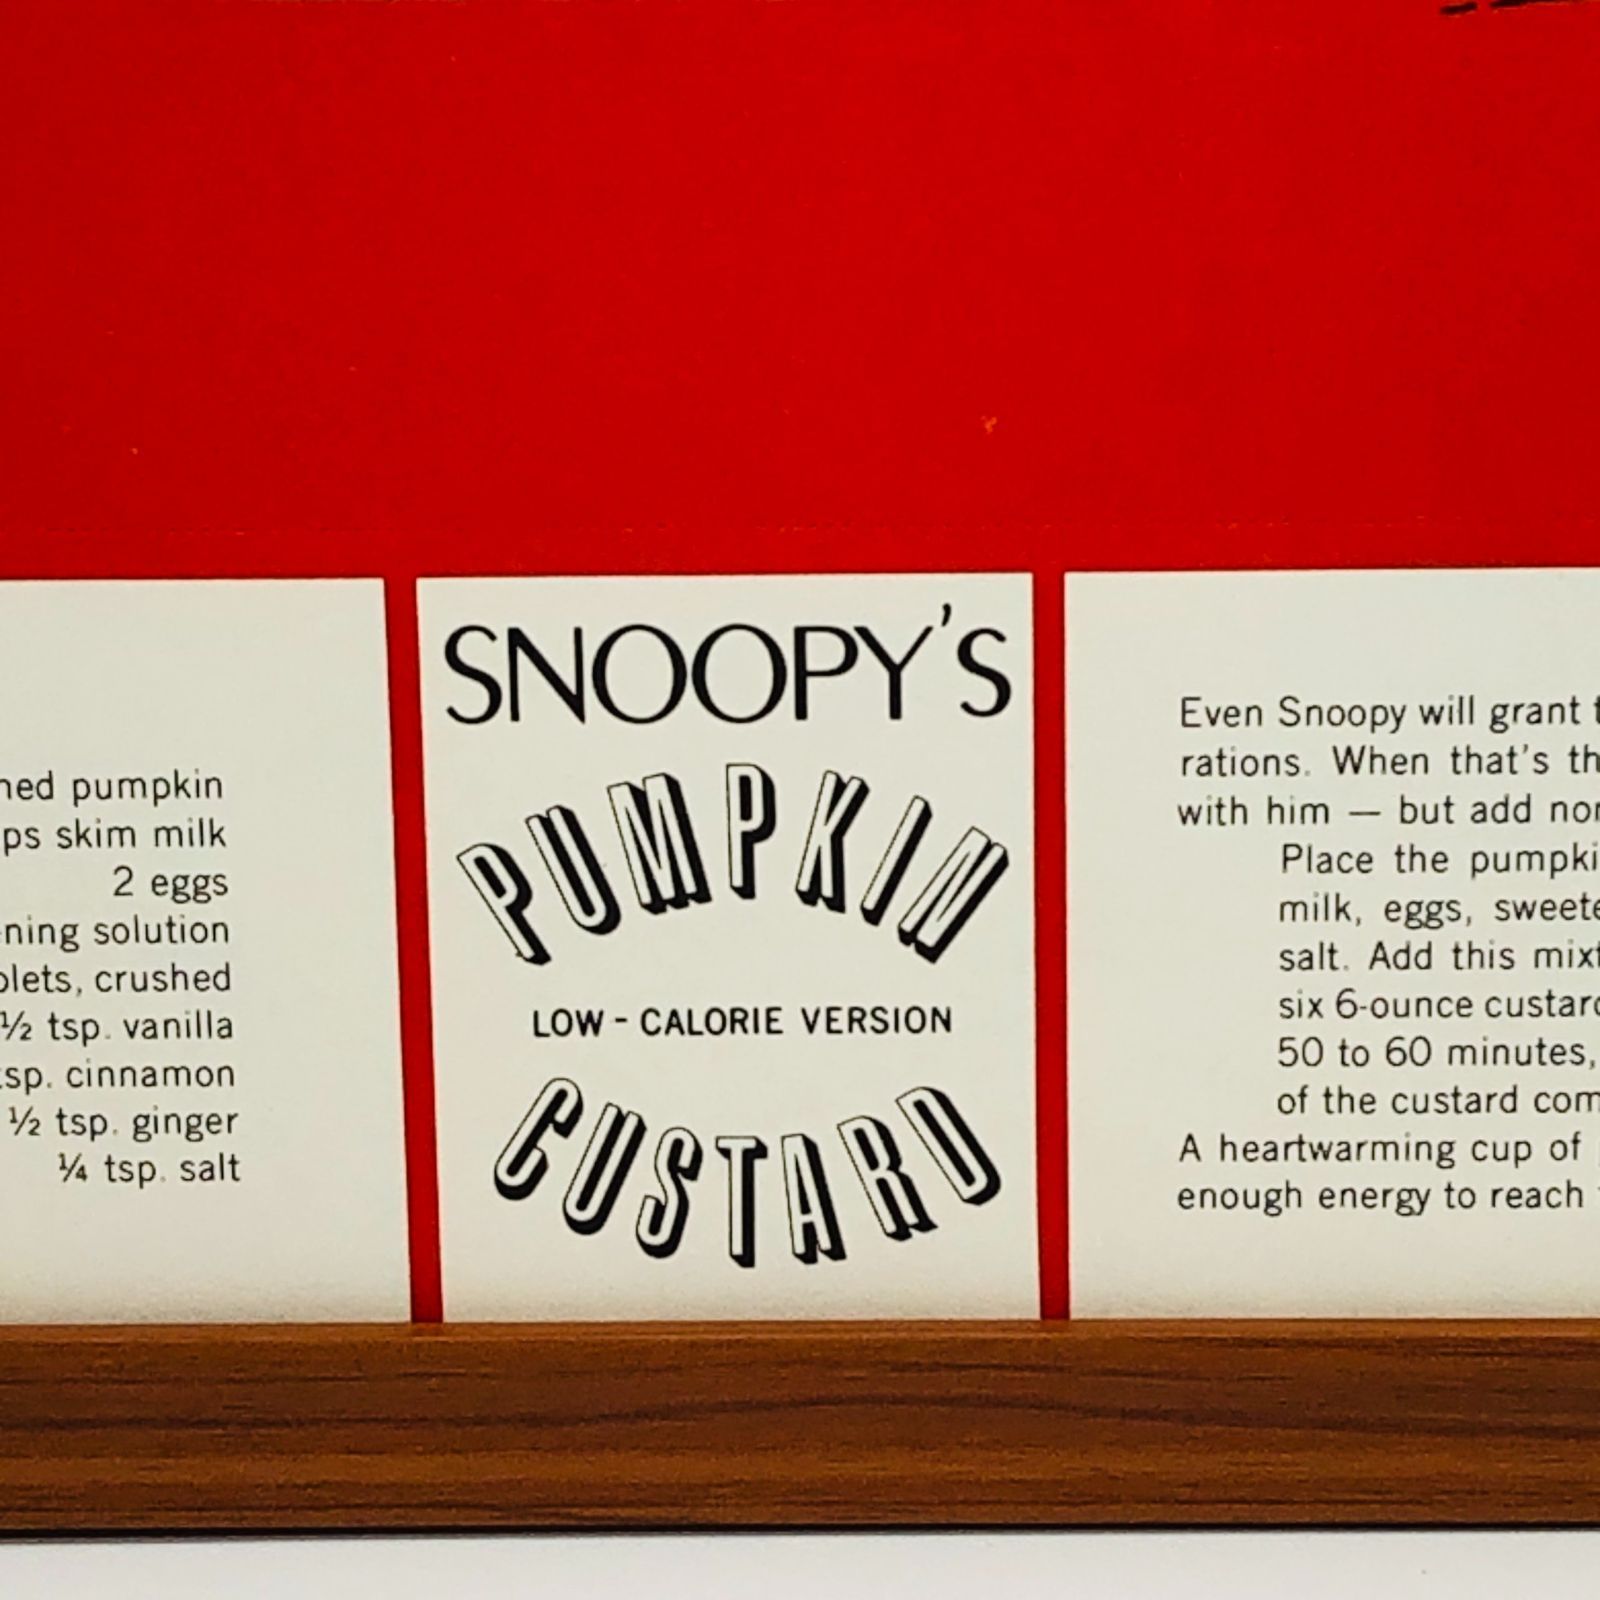 pumpkin
skim milk
2 eggs
solution
crushed
½ tsp. vanilla
tsp. cinnamon
½ tsp. ginger
¼ tsp. salt
SNOOPY'S
PUMPKIN
LOW-CALORIE VERSION
CUSTARD
Even Snoopy will grant
rations. When that's
with him — but add
Place the
milk, eggs,
salt. Add this
six 6-ounce
50 to 60 minutes,
of the custard
A heartwarming cup of
enough energy to reach